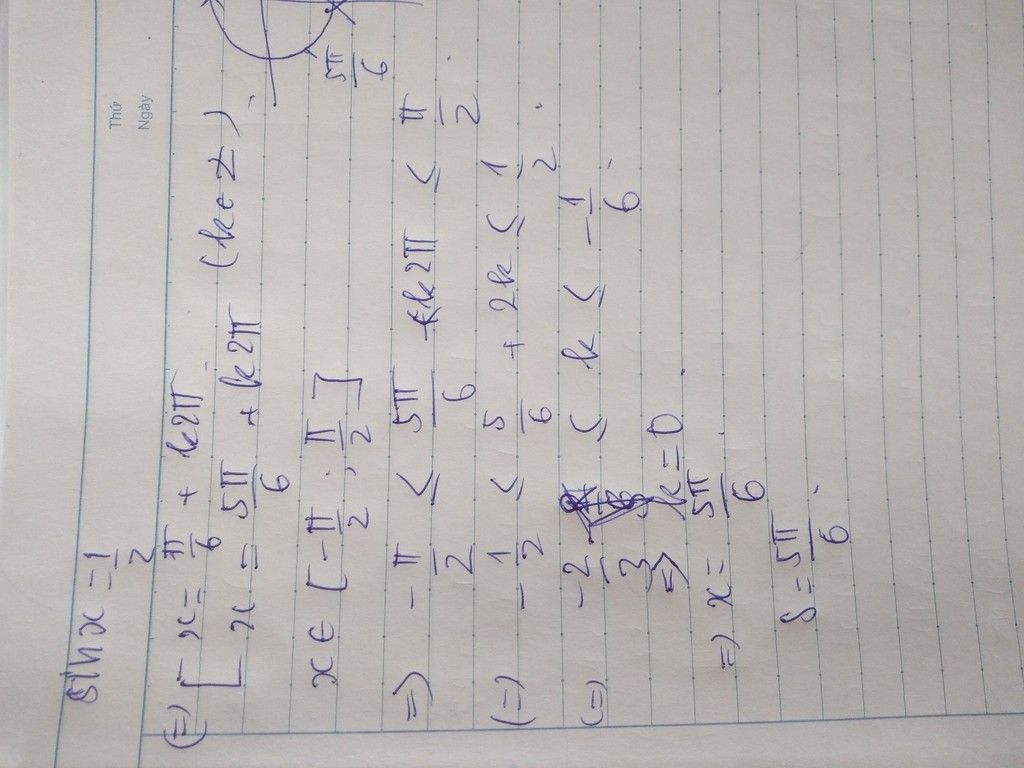 Thứ
Ngày
sin x = 1/2
(=) [ x = π/6 + k2π
x = 5π/6 + k2π (k∈Z)
5π/6
x ∈ [-π/2; π/2]
=) -π/2 ≤ 5π/6 + k2π ≤ π/2
(=) -1/2 ≤ 5/6 + 2k ≤ 1/2
(=) -2/3 ≤ k ≤ -1/6
=) k = 0
=) x = 5π/6
S = 5π/6